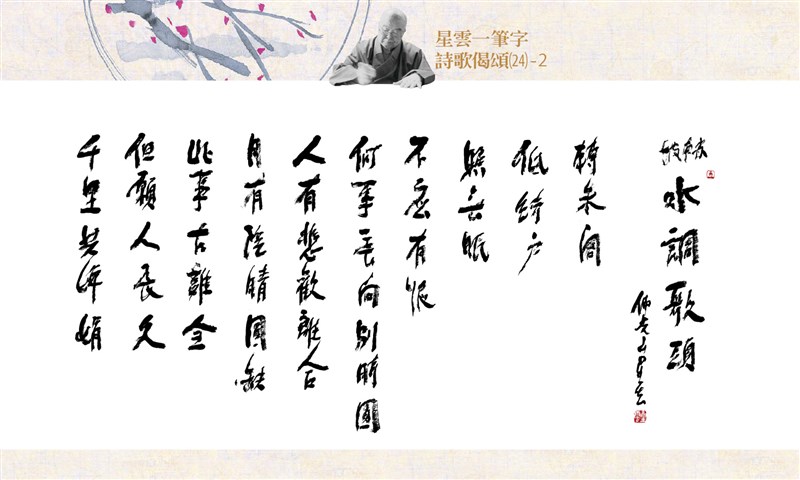 星雲一筆字
詩歌偈頌(24)-2
蘇東坡
水調歌頭
佛光山星雲
轉朱閣
低綺戶
照無眠
不應有恨
何事長向別時圓
人有悲歡離合
月有陰晴圓缺
此事古難全
但願人長久
千里共嬋娟